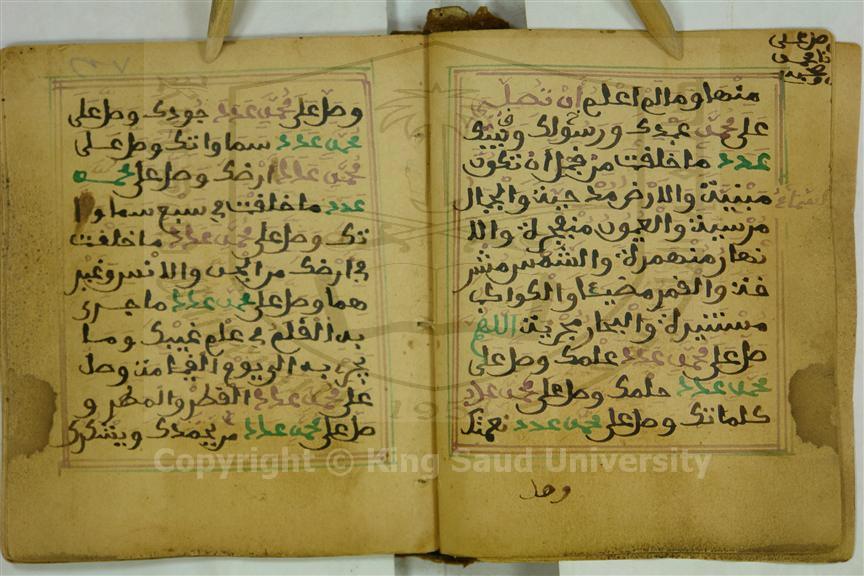 صل على
منها وما لم اعلم أن تصلي
على محمد عبدك ورسولك ونبيك
عدد ما خلفت من قبل أن تكون
السماء
مبنية والارض مدحية والجبال
مرسية والعيون منفجرة والا
نهار منهمرة والشمس مشر
فة والقمر مضيئا والكواكب
مستنيرة والبحار مجرية اللهم
صل على محمد عدد علمك وصل على
محمد عدد حلمك وصل على محمد عدد
كلماتك وصل على محمد عدد نعمتك
وصل
وصل على محمد عدد جودك وصل على
محمد عدد سماواتك وصل على
محمد عدد ارضك وصل على محمد
عدد ما خلفت في سبع سماوا
تك وصل على محمد عدد ما خلفت
في ارضك من الجن والانس وغير
هما وصل على محمد عدد ما جرى
به القلم في علم غيبك وما
يجري به الى يوم القيامة وصل
على محمد عدد القطر والمطر و
صل على محمد عدد من يحمدك ويشكرك
Copyright © King Saud University